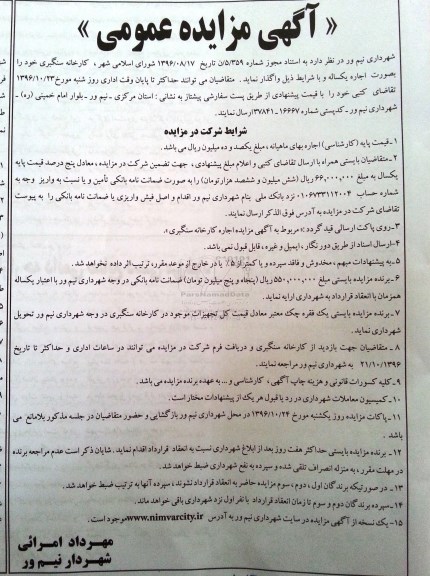 « آگهی مزایده عمومی »
شهرداری نیم ور در نظر دارد به استناد مجوز شماره ۵/۳۵۹/ن تاریخ ۱۳۹۶/۰۸/۱۷ شورای اسلامی شهر ، کارخانه سنگبری خود را
بصورت اجاره یکساله و با شرایط ذیل واگذار نماید . متقاضیان می توانند حداکثر تا پایان وقت اداری روز شنبه مورخ ۱۳۹۶/۱۰/۲۳
تقاضای کتبی خود را با قیمت پیشنهادی از طریق پست سفارشی پیشتاز به نشانی : استان مرکزی ـ نیم ور ـ بلوار امام خمینی (ره) ـ
شهرداری نیم ور ـ کدپستی شماره ۱۶۶۶۷-۳۷۸۴۱ ارسال نمایند.
شرایط شرکت در مزایده
۱ـ قیمت پایه (کارشناسی) اجاره بهای ماهیانه ، مبلغ یکصد و ده میلیون ریال می باشد.
۲ـ متقاضیان بایستی همراه با ارسال تقاضای کتبی و اعلام مبلغ پیشنهادی ، جهت تضمین شرکت در مزایده ، معادل پنج درصد قیمت پایه
یکسال به مبلغ ۶۶,۰۰۰,۰۰۰ ریال (شش میلیون و ششصد هزار تومان) را به صورت ضمانت نامه بانکی تأمین و یا نسبت به واریز وجه به
شماره حساب ۰۱۰۶۷۳۳۱۱۲۰۰۴ نزد بانک ملی بنام شهرداری نیم ور اقدام و اصل فیش واریزی یا ضمانت نامه بانکی را به پیوست
تقاضای شرکت در مزایده به آدرس فوق الذکر ارسال نمایند.
۳ـ روی پاکت ارسالی قید گردد «مربوط به آگهی مزایده اجاره کارخانه سنگبری».
۴ـ ارسال اسناد از طریق دورنگار ، ایمیل و غیره ، قابل قبول نمی باشد.
۵ـ به پیشنهادات مبهم ، مخدوش و فاقد سپرده و یا کمتر از ۵٪ یا در خارج از موعد مقرر، ترتیب اثر داده نخواهد شد.
۶ـ برنده مزایده بایستی مبلغ ۵۵۰,۰۰۰,۰۰۰ ریال (پنجاه و پنج میلیون تومان) ضمانت نامه بانکی در وجه شهرداری نیم ور با اعتبار یکساله
همزمان با انعقاد قرارداد به شهرداری ارایه نماید.
۷ـ برنده مزایده بایستی یک فقره چک معتبر معادل قیمت کل تجهیزات موجود در کارخانه سنگبری در وجه شهرداری نیم ور تحویل
شهرداری نماید.
۸ ـ متقاضیان جهت بازدید از کارخانه سنگبری و دریافت فرم شرکت در مزایده می توانند در ساعات اداری و حداکثر تا تاریخ
۲۱/۱۰/۱۳۹۶ به شهرداری نیم ور مراجعه نمایند.
۹ـ کلیه کسورات قانونی و هزینه چاپ آگهی ، کارشناسی و... به عهده برنده مزایده می باشد .
۱۰ـ کمیسیون معاملات شهرداری در رد یا قبول هر یک از پیشنهادات مختار است .
۱۱ـ پاکات مزایده روز یکشنبه مورخ ۱۳۹۶/۱۰/۲۴ در محل شهرداری نیم ور بازگشایی و حضور متقاضیان در جلسه مذکور بلامانع می
باشد .
۱۲ـ برنده مزایده بایستی حداکثر هفت روز بعد از ابلاغ شهرداری نسبت به انعقاد قرارداد اقدام نماید. شایان ذکر است عدم مراجعه برنده
در مهلت مقرر ، به منزله انصراف تلقی شده و سپرده به نفع شهرداری ضبط خواهد شد.
۱۳ـ در صورتیکه برندگان اول ، دوم ، سوم مزایده حاضر به انعقاد قرارداد نشوند ، سپرده آنها به ترتیب ضبط خواهد شد.
۱۴ـ سپرده برندگان دوم و سوم تا زمان انعقاد قرارداد با نفر اول نزد شهرداری باقی خواهد ماند.
۱۵ـ یک نسخه از آگهی مزایده در سایت شهرداری نیم ور به آدرس www.nimvarcity.ir موجود است .
مهرداد امرائی
شهردار نیم ور